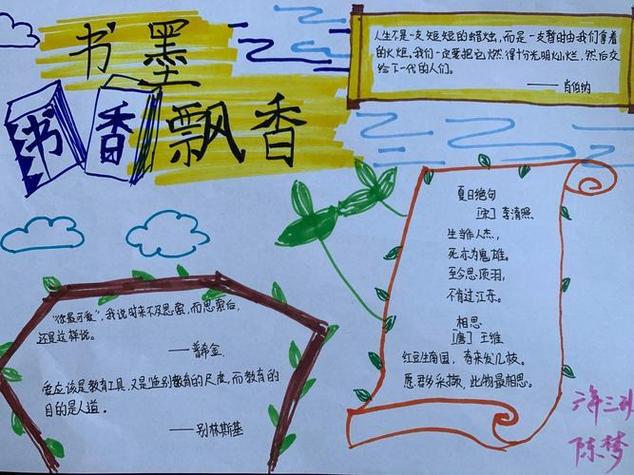 书墨
书香飘香
人生不是一支短短的蜡烛，而是一支暂时由我们拿着
的火炬。我们一定要把它燃得十分光明灿烂，然后交
给下一代的人们。
—— 肖伯纳
夏日绝句
[宋] 李清照
生当作人杰，
死亦为鬼雄。
至今思项羽，
不肯过江东。
相思
[唐] 王维
红豆生南国，春来发几枝。
愿君多采撷，此物最相思。
"你最可爱"，我说时来不及思索，而思索后，
还是这样说。
——普希金
爱应该是教育工具，又是鉴别教育的尺度，而教育的
目的是人道。
——别林斯基
六年三班
陈梦